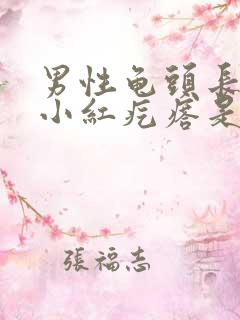 男性龟頭長
小紅疙瘩是
張福志